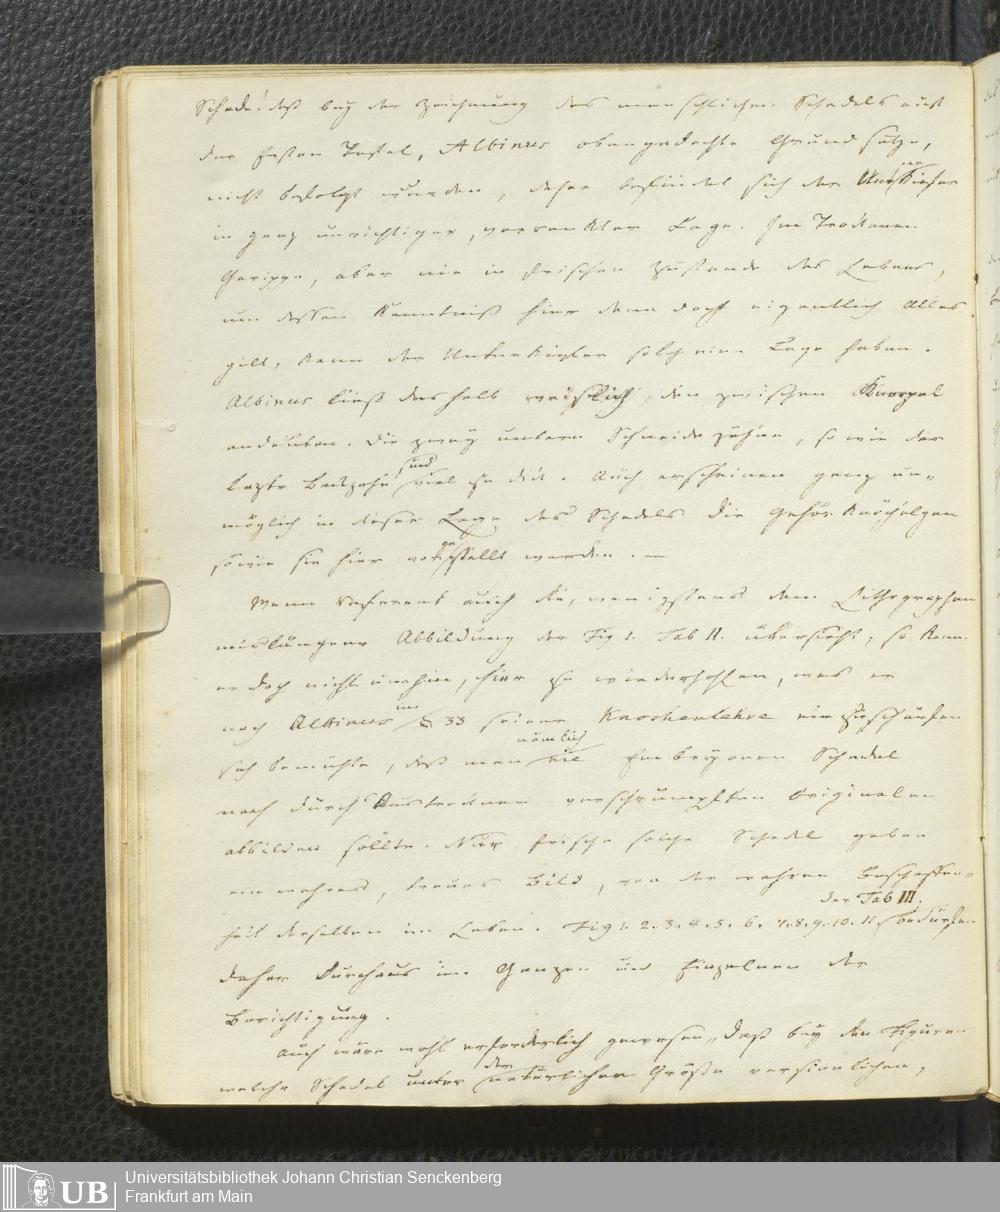 Schade! daß bey der Zeichnung des menschlichen Schedels auf
der ersten Tafel, Albinus obengedachte Grundsätze,
nicht befolgt wurden, daher befindet sich der Unterkiefer
in ganz unrichtiger, verrenkter Lage. Im Trockenen
Gerippe, aber nie im frischen Zustande des Lebens,
um dessen Kenntniß hier denn doch eigentlich Alles
gilt, kann der Unterkiefer solch eine Lage haben.
Albinus ließ deshalb weislich, den zwischen Knorpel
andeuten. Die zwey untern Schneidezähne, so wie der
letzte Backzahn sind viel zu dick. Auch erscheinen ganz un-
möglich in dieser Lage des Schedels die Gehör Knöchelgen
sowie sie hier vorgestellt werden. —
Wenn Referent auch die, wenigstens dem Lithographen
mislungene Abbildung der Fig 1. Tab II. übersieht, so kann
er doch nicht umhin, hier zu wiederhohlen, was er
nach Albinus im § 33 seiner Knochenlehre einzuschärfen
sich bemühte, daß man nämlich nie Embryonen Schedel
nach durch Austrocknen verschrumpften Originalen
abbilden sollte. Nur frische solche Schedel geben
ein wahres, treues Bild, von der wahren Beschaffen-
heit derselben im Leben. Fig 1. 2. 3. 4. 5. 6. 7. 8. 9. 10. 11 der Tab III. bedürfen
daher durchaus im Ganzen und Einzelnen der
Berichtigung.
Auch wäre wohl erforderlich gewesen, daß bey den Figuren
welche Schedel unter der natürlichen Größe versinnlichen,
UB
Universitätsbibliothek Johann Christian Senckenberg
Frankfurt am Main